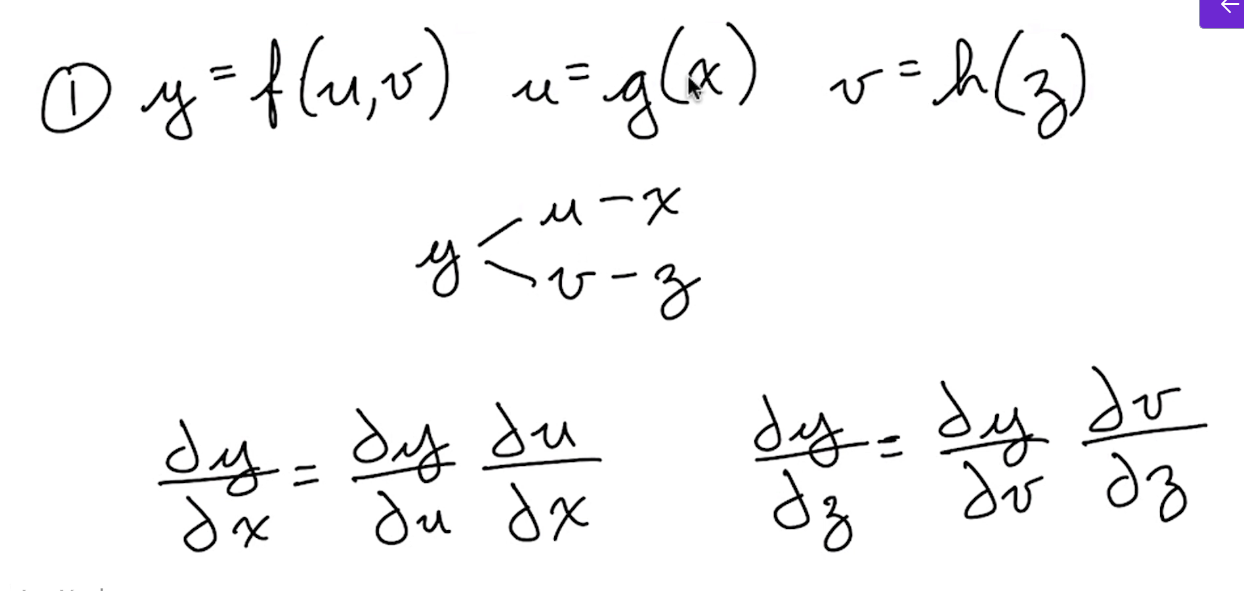 ① y = f(u,v) u = g(x) v = h(z)
u – x
y <
v – z
∂y/∂x = ∂y/∂u ∂u/∂x ∂y/∂z = ∂y/∂v ∂v/∂z